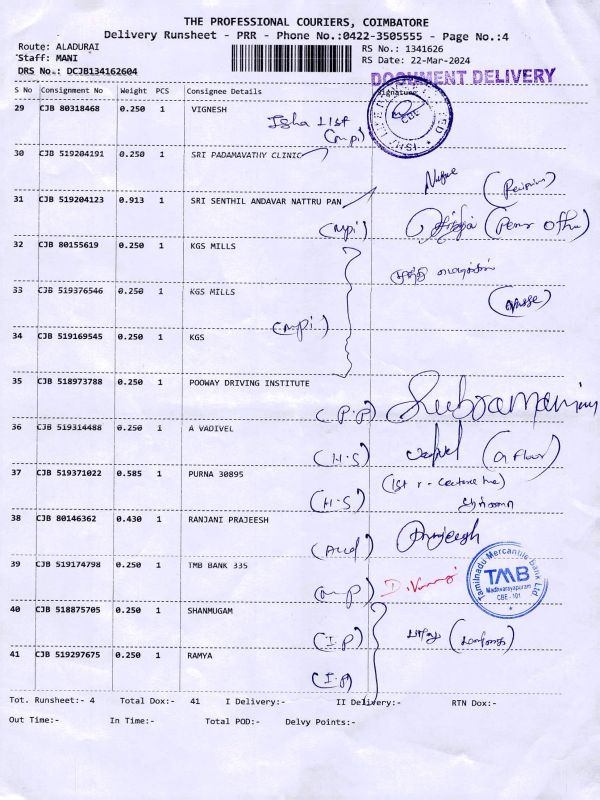 THE PROFESSIONAL COURIERS, COIMBATORE
Delivery Runsheet - PRR - Phone No.:0422-3505555 - Page No.:4
Route: ALADURAI
Staff: MANI
DRS No.: DCJB134162604
RS No.: 1341626
RS Date: 22-Mar-2024
DOCUMENT DELIVERY
S No Consignment No Weight PCS Consignee Details Signature
29 CJB 80318468 0.250 1 VIGNESH
Isha List
(mpi)
CBE
30 CJB 519204191 0.250 1 SRI PADAMAVATHY CLINIC
31 CJB 519204123 0.913 1 SRI SENTHIL ANDAVAR NATTRU PAN
(mpi)
32 CJB 80155619 0.250 1 KGS MILLS
33 CJB 519376546 0.250 1 KGS MILLS
(mpi)
34 CJB 519169545 0.250 1 KGS
35 CJB 518973788 0.250 1 POOWAY DRIVING INSTITUTE
(P.P) Subramaniam
36 CJB 519314488 0.250 1 A VADIVEL
(H.S) (G Floor)
37 CJB 519371022 0.585 1 PURNA 30895
(H.S)
38 CJB 80146362 0.430 1 RANJANI PRAJEESH
Prajeesh
39 CJB 519174798 0.250 1 TMB BANK 335
Tamilnadu Mercantile Bank Ltd
TMB
Madhvarayapuram
CBE - 101
40 CJB 518875705 0.250 1 SHANMUGAM
(I.P)
41 CJB 519297675 0.250 1 RAMYA
(I.P)
Tot. Runsheet:- 4 Total Dox:- 41 I Delivery:- II Delivery:- RTN Dox:-
Out Time:- In Time:- Total POD:- Delvy Points:-